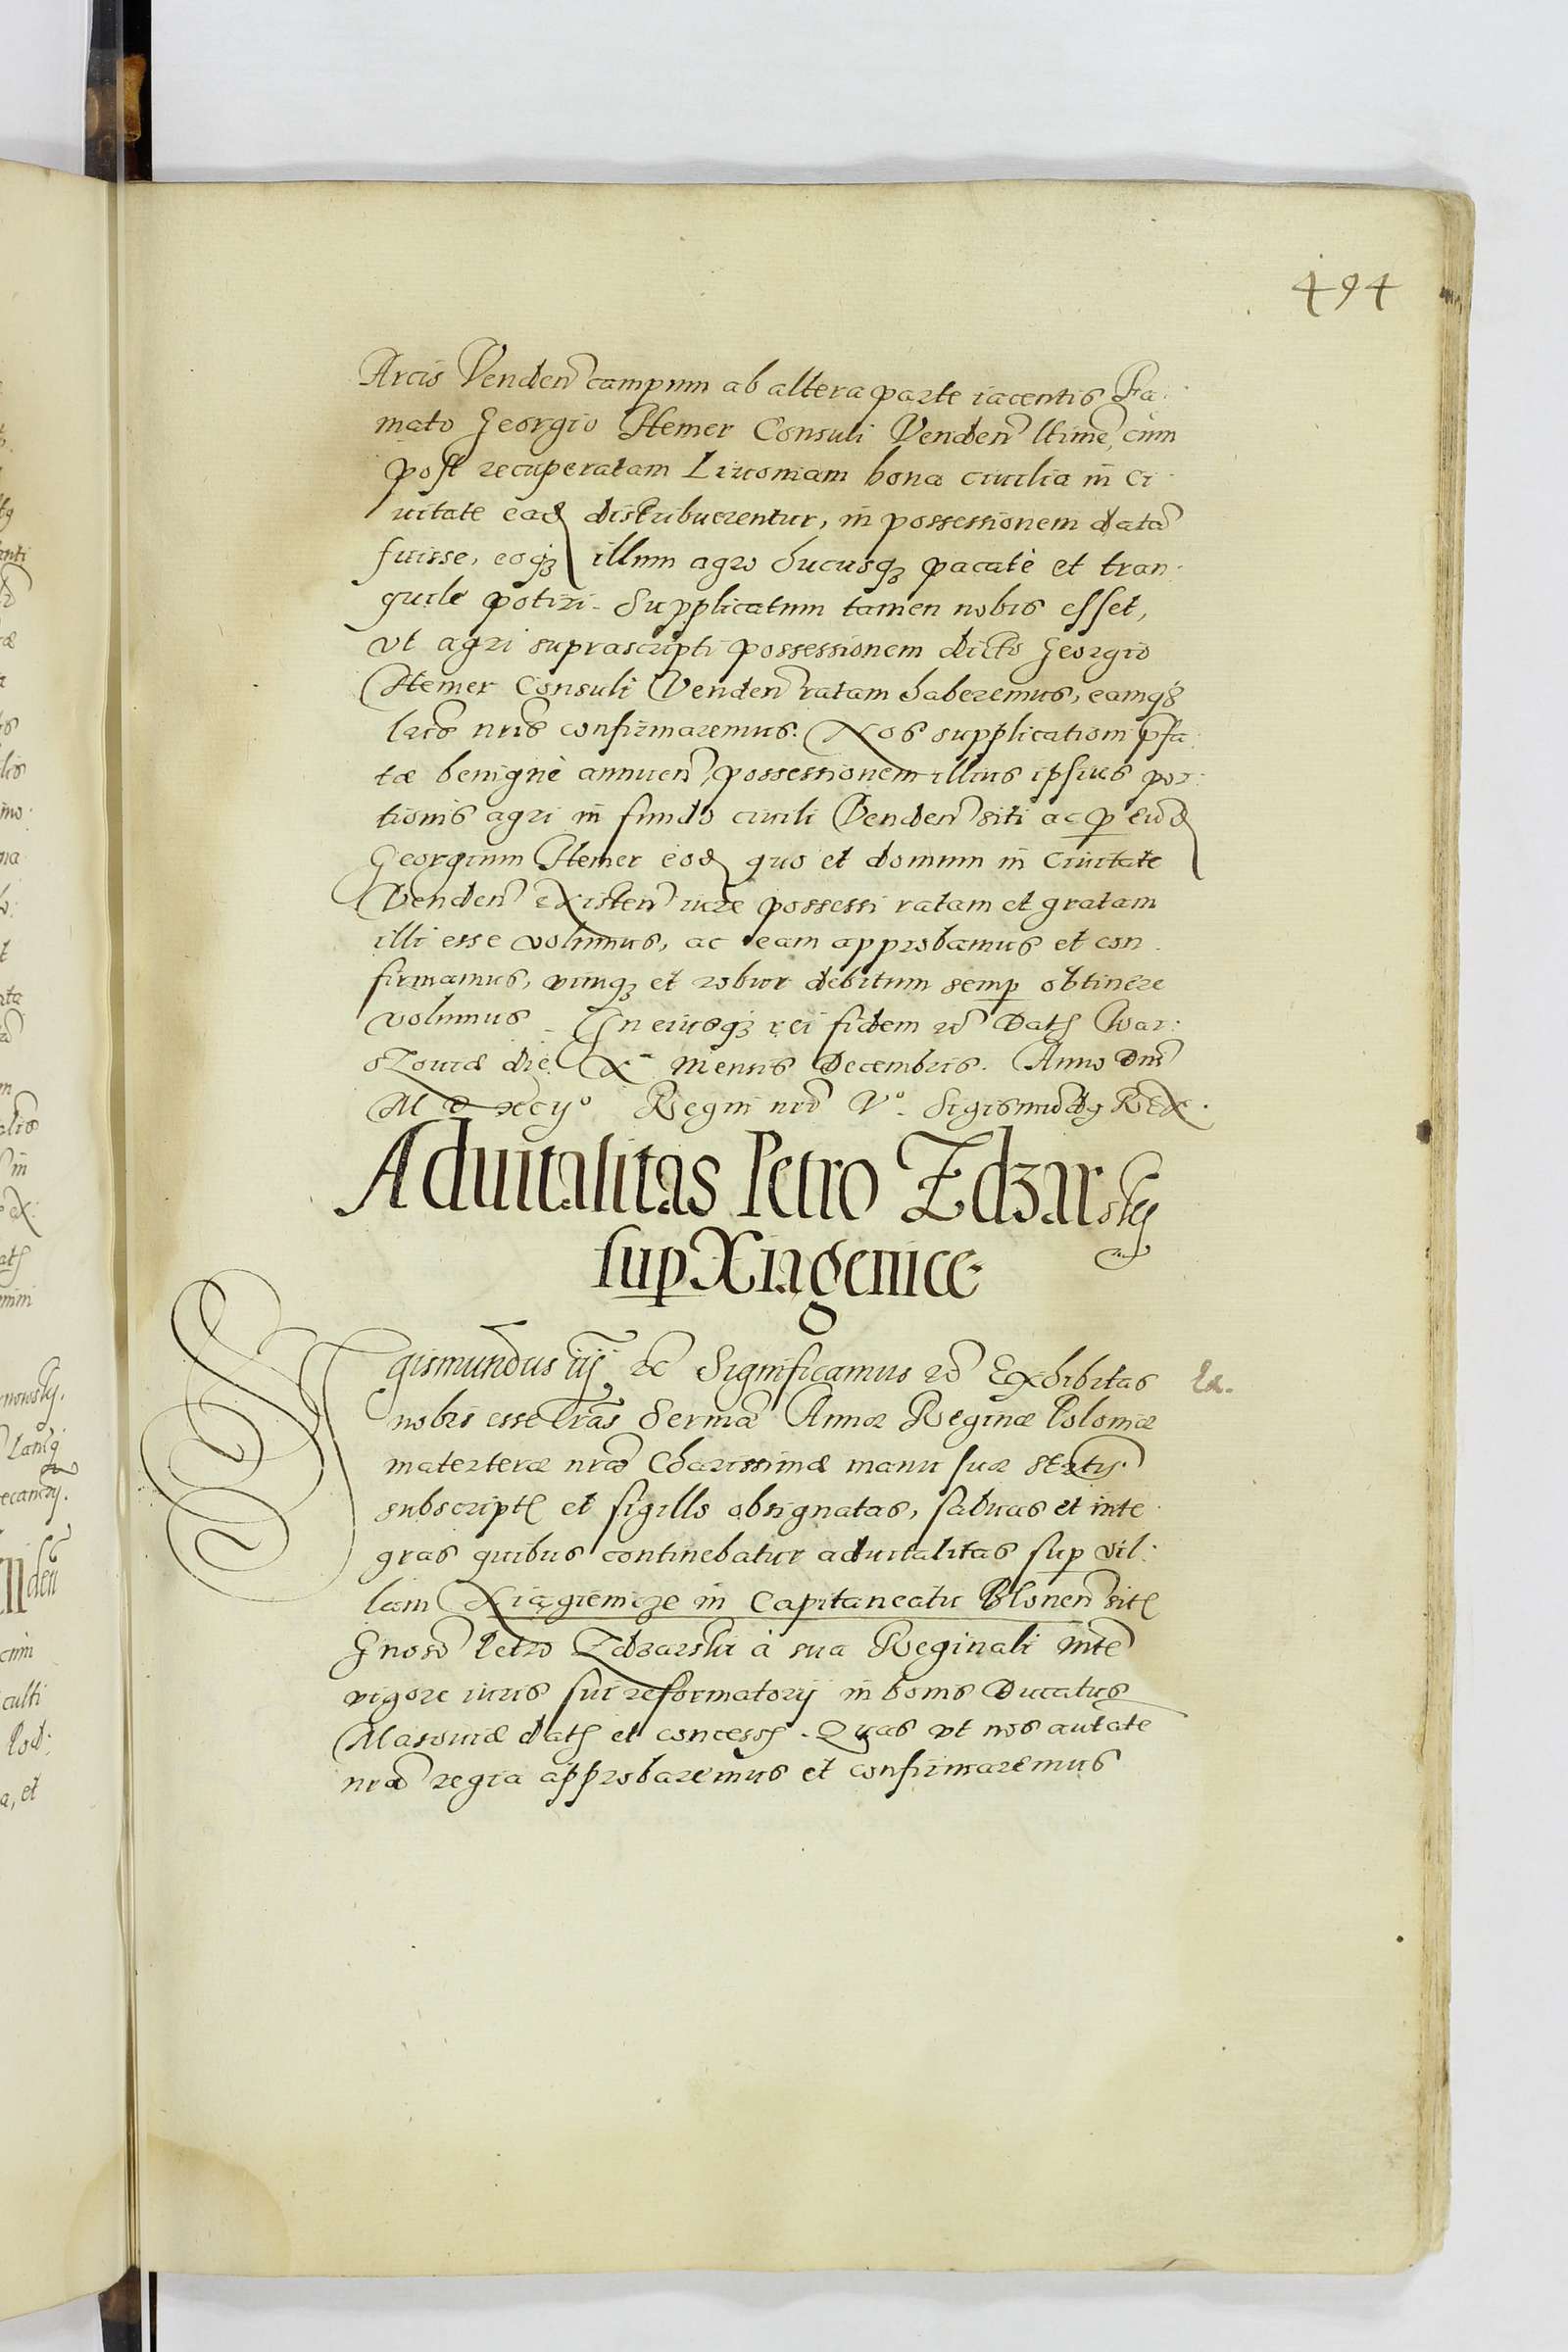 494
Arcis Venden campum ab altera parte iacentis Fa:
mato Georgio Stemer Consuli Venden ltime, cum
post recuperatam Liuoniam bona ciuilia in Ci
uitate ead distribuerentur, in possessionem data
fuisse, eoq illum agro hucusq pacatè et tran:
quile potiri. Supplicatum tamen nobis esset,
vt agri suprascripti possessionem dicto Georgio
Stemer Consuli Venden ratam haberemus, eamq
lris nris confirmaremus. Nos supplicationi pfa:
tæ benignè annuen, possessionem illius ipsius por:
tionis agri in fundo ciuili Venden siti ac p eud
Georgium Stemer eod quo et domum in Ciuitate
Venden existen iure possessi ratam et gratam
illi esse volumus, ac eam approbamus et con
firmamus, vimq et robur debitum semp obtinere
volumus. In eiusq rei fidem etc Dat War:
szouiæ die X mensis Decembris. Anno Dni
M D xcijo Regni nri Vo. Sigismudq Rex.
Aduitalitas Petro Zdzarskij
sup Xiągenice
Sigismundus iij etc Significamus etc Exhibitas
nobis esse lras Sermæ Annæ Reginæ Poloniæ
materteræ nræ Charissimæ manu suæ Sertis
subscript et sigillo obsignatas, saluas et inte
gras quibus continebatur aduitalitas sup vil:
lam Xiągienicze in Capitaneatu Blonen sit
Gnoso Petro Zdzarski à sua Reginali Mte
vigore iuris sui reformatorij in bonis Ducatus
Masouiæ dat et concess. Quas vt nos autate
nra regia approbaremus et confirmaremus